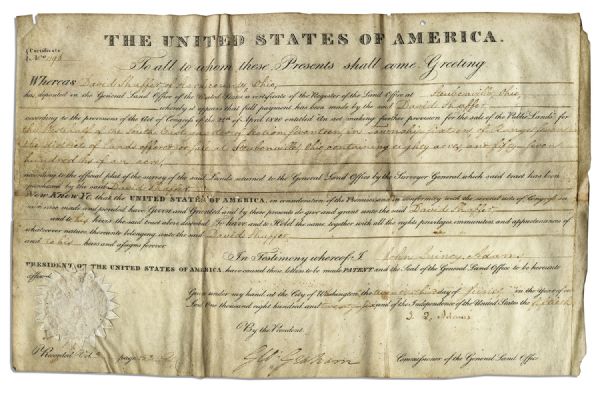 THE UNITED STATES OF AMERICA.
Certificate
No.
To all to whom these Presents shall come, Greeting
Whereas David Shaffer of Harrison County, Ohio,
has deposited in the General Land Office of the United States a certificate of the Register of the Land Office at Steubenville, Ohio,
whereby it appears that full payment has been made by the said David Shaffer
according to the provisions of the Act of Congress of the 24th of April 1820 entitled An act making further provision for the sale of the Public Lands for
the West half of the South East quarter of Section Seventeen in Township of Range
the district of lands offered for sale at Steubenville, Ohio, containing eighty acres, and fifty seven
hundredths of an acre,
according to the official plat of the survey of the said Lands returned to the General Land Office by the Surveyor General which said tract has been
purchased by the said David Shaffer
Now Know Ye, that the UNITED STATES OF AMERICA, in consideration of the Premises and in conformity with the several acts of Congress in
case made and provided have Given and Granted and by these presents do give and grant unto the said David Shaffer
and to his heirs the said tract above described To have and to Hold the same together with all the rights privileges immunities and appurtenances of
whatsoever nature thereunto belonging unto the said David Shaffer
and to his heirs and assigns forever
In Testimony whereof I John Quincy Adams
PRESIDENT OF THE UNITED STATES OF AMERICA have caused these letters to be made PATENT and the Seal of the General Land Office to be hereunto
affixed.
Given under my hand, at the City of Washington, the day of in the Year of our
Lord One thousand eight hundred and and of the Independence of the United States the
By the President J. Q. Adams
Geo. Graham Commissioner of the General Land Office
Recorded Vol. page